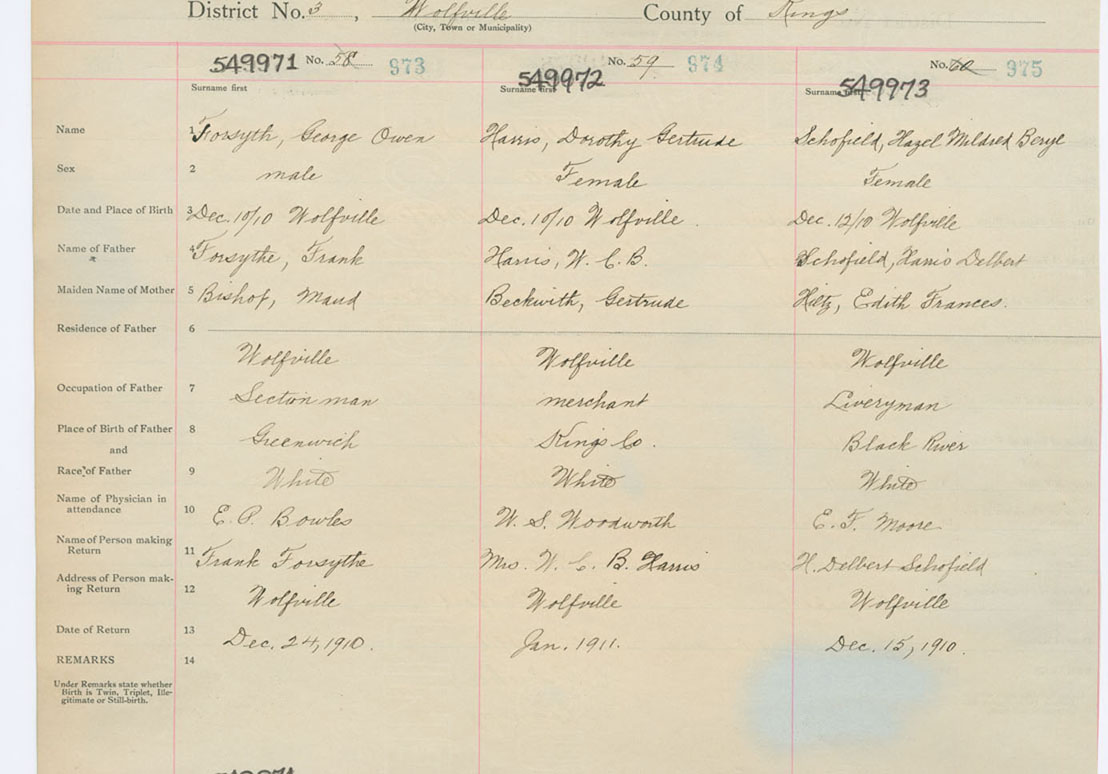 District No. 3, Wolfville County of Kings
(City, Town or Municipality)
549971 No. 58 973 549972 No. 59 974 549973 No. 60 975
Surname first Surname first Surname first
Name 1 Forsyth, George Owen Harris, Dorothy Gertrude Schofield, Hazel Mildred Beryl
Sex 2 male Female Female
Date and Place of Birth 3 Dec. 10/10 Wolfville Dec. 10/10 Wolfville. Dec. 12/10 Wolfville
Name of Father 4 Forsythe, Frank Harris, W. C. B. Schofield, Harris Delbert
Maiden Name of Mother 5 Bishop, Maud Beckwith, Gertrude Hiltz, Edith Frances.
Residence of Father 6
Wolfville Wolfville Wolfville
Occupation of Father 7 Section man merchant Liveryman
Place of Birth of Father 8 Greenwich Kings Co. Black River
and
Race of Father 9 White White White
Name of Physician in
attendance 10 E. P. Bowles W. S. Woodworth E. F. Moore
Name of Person making
Return 11 Frank Forsythe Mrs. W. C. B. Harris H. Delbert Schofield
Address of Person mak-
ing Return 12 Wolfville Wolfville Wolfville
Date of Return 13 Dec. 24, 1910. Jan. 1911. Dec. 15, 1910.
REMARKS 14
Under Remarks state whether
Birth is Twin, Triplet, Ille-
gitimate or Still-birth.